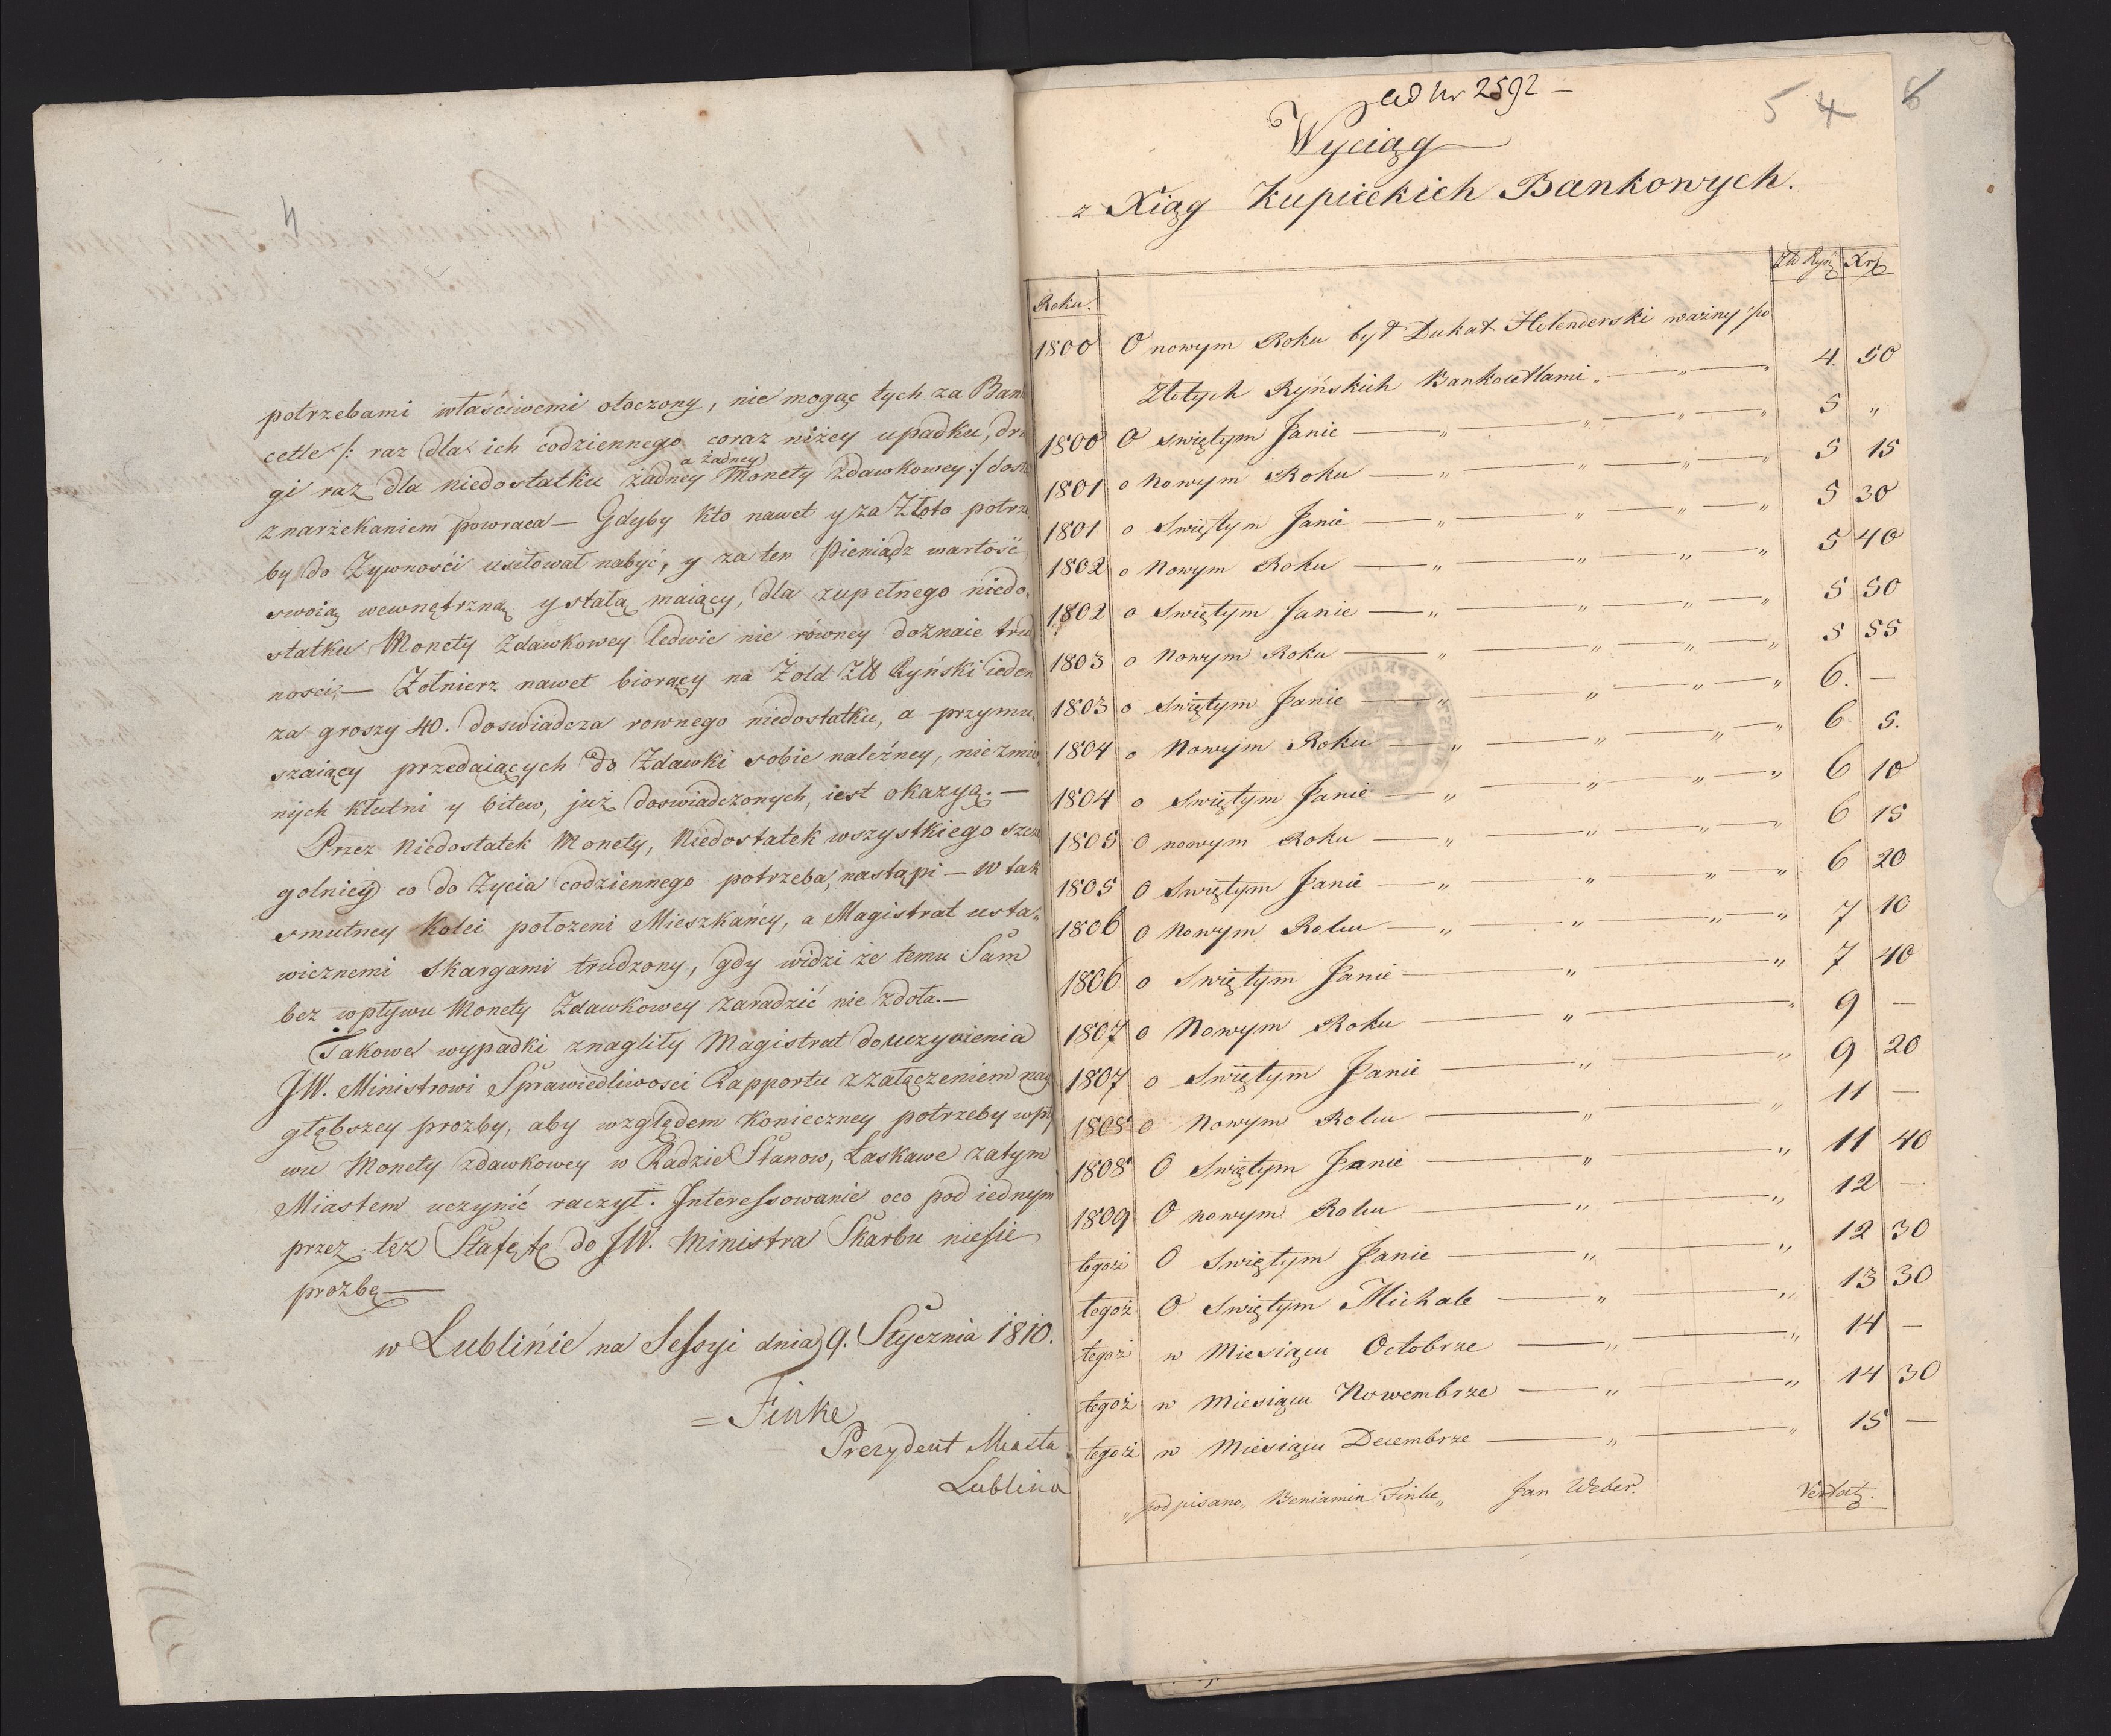 4
potrzebami właściwemi otoczony, nie mogąc tych za Ban
cetle /: raz dla ich codziennego coraz niżey upadku, dru
a żadney
gi raz dla niedostatku żadney Monety zdawkowey :/ dosta
z narzekaniem powraca — Gdyby kto nawet y za Złoto potrze
by do Zywnośći usiłował nabyć, y za ten Pieniądz wartość
swoią wewnętrzną y stałą maiący, dla zupełnego niedo,
statku Monety Zdawkowey ledwie nie równey doznaie trud
nosci; — Żołnierz nawet biorący na Żołd Złł Ryński ieden
za groszy 40. doswiadcza rownego niedostatku, a przymu,
szaiący przedaiących do Zdawki sobie należney, niezmier
nych kłutni y bitew, już doswiadczonych, iest okazyą. —
Przez Niedostatek Monety, Niedostatek wszystkiego szcze
golniey co do Życia codziennego potrzeba, nastąpi — w tak
smutney kolei położeni Mieszkańcy, a Magistrat usta„
wicznemi skargami trudzony, gdy widzi że temu Sam
bez wpływu Monety Zdawkowey zaradzić nie zdoła. —
Takowe wypadki znagliły Magistrat do uczynienia
JW. Ministrowi Sprawiedliwosci Rapportu z załączeniem nay
głębszey prozby, aby względem konieczney potrzeby wpły
wu Monety zdawkowey w Radzie Stanow, Łaskawe zatym
Miastem uczynić raczył. Interessowanie oco pod iednym
przez też Stafętę do JW. Ministra Skarbu niesie
prozbę —
w Lublinie na Sessyi dnia 9. Stycznia 1810.
= Finke
Prezydent Miasta
Lublina
ad Nr 2592 —
5 4 6
Wyciąg
z Xiąg Kupieckich Bankowych.
Roku. Złł Ryń Xr
1800 O nowym Roku był Dukat Holenderski ważny po
Złotych Ryńskich Bankocetlami „ — „ — „ 4. 50
1800 O swiętym Janie — „ — „ — „ — „ 5 „
1801 o Nowym Roku — „ — „ — „ — „ 5 15
1801 o Swiętym Janie — „ — „ — „ — „ 5 30
1802 o Nowym Roku — „ — „ — „ — „ 5 40
1802 o Swiętym Janie — „ — „ — „ — „ 5 50
1803 o Nowym Roku — „ — „ — „ — „ 5 55
1803 o Swiętym Janie — „ — „ — „ — „ 6. —
1804 o Nowym Roku — „ — „ — „ — „ 6 5.
1804 o Swiętym Janie — „ — „ — „ — „ 6 10
1805 O nowym Roku — „ — „ — „ — „ 6 15
1805 O Swiętym Janie — „ — „ — „ — „ 6 20
1806 o Nowym Roku — „ — „ — „ — „ 7 10
1806 o Swiętym Janie — „ — „ 7 40
1807 o Nowym Roku — „ — „ 9 —
1807 o Swiętym Janie — „ — „ 9 20
1808 o Nowym Roku — „ — „ 11 —
1808 O Swiętym Janie — „ — „ 11 40
1809 O nowym Roku — „ — „ 12 —
tegoż O Swiętym Janie — „ — „ 12 30
tegoż O Swiętym Michale — „ — „ 13 30
tegoż w Miesiącu Octobrze — „ — „ 14 —
tegoż w Miesiącu Nowembrze — „ — „ 14 30
tegoż w Miesiącu Decembrze — „ — „ 15 —
„podpisano„ Beniamin Finke„ Jan Weber.